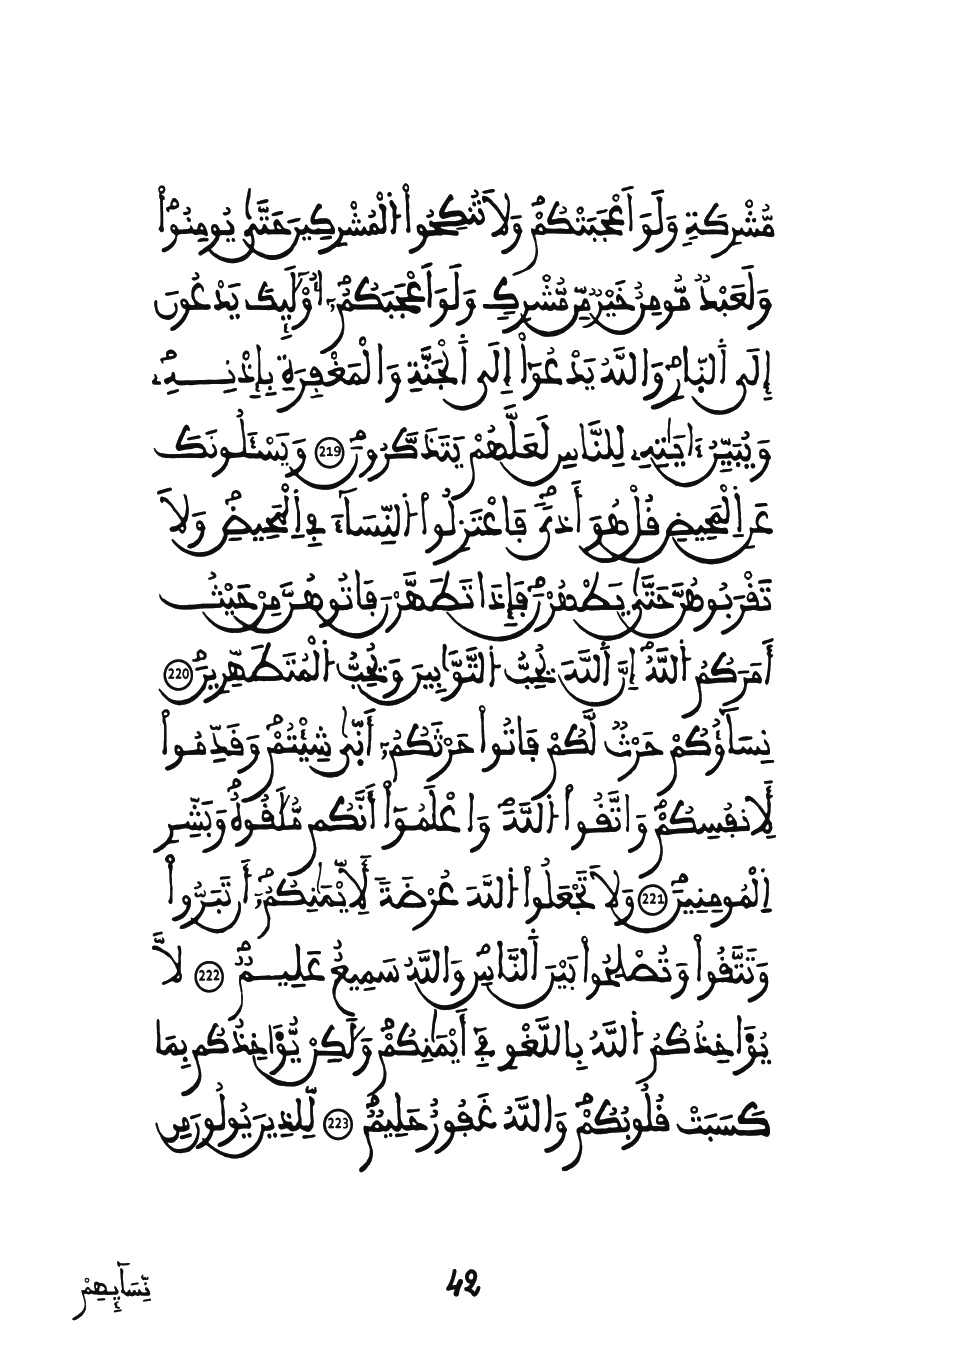 مُّشْرِكَةٖ وَلَوَ اَعْجَبَتْكُمْۖ وَلَا تُنكِحُوا۟ اُ۬لْمُشْرِكِينَ حَتَّىٰ يُومِنُوا۟ۖ
وَلَعَبْدٞ مُّومِنٌ خَيْرٞ مِّن مُّشْرِكٖ وَلَوَ اَعْجَبَكُمُۥٓۖ أُو۟لَٰٓئِكَ يَدْعُونَ
إِلَى اَ۬لنّ۪ارِۖ وَاللَّهُ يَدْعُوٓا۟ إِلَى اَ۬لْجَنَّةِ وَالْمَغْفِرَةِ بِإِذْنِهِۦۖ
وَيُبَيِّنُ ءَايَٰتِهِۦ لِلنَّاسِ لَعَلَّهُمْ يَتَذَكَّرُونَۖ 219 وَيَسْـَٔلُونَكَ
عَنِ اِ۬لْمَحِيضِ قُلْ هُوَ أَذىٗۖ فَاعْتَزِلُوا۟ اُ۬لنِّسَآءَ فِے اِ۬لْمَحِيضِۖ وَلَا
تَقْرَبُوهُنَّ حَتَّىٰ يَطْهُرْنَۖ فَإِذَا تَطَهَّرْنَ فَاتُوهُنَّ مِنْ حَيْثُ
أَمَرَكُمُ اُ۬للَّهُۖ إِنَّ اَ۬للَّهَ يُحِبُّ اُ۬لتَّوَّٰبِينَ وَيُحِبُّ اُ۬لْمُتَطَهِّرِينَۖ 220
نِسَآؤُكُمْ حَرْثٞ لَّكُمْ فَاتُوا۟ حَرْثَكُمُۥٓ أَنّ۪ىٰ شِئْتُمْۖ وَقَدِّمُوا۟
لِأَنفُسِكُمْۖ وَاتَّقُوا۟ اُ۬للَّهَۖ وَاعْلَمُوٓا۟ أَنَّكُم مُّلَٰقُوهُۖ وَبَشِّرِ
اِ۬لْمُومِنِينَۖ 221 وَلَا تَجْعَلُوا۟ اُ۬للَّهَ عُرْضَةٗ لِّأَيْمَٰنِكُمُۥٓ أَن تَبَرُّوا۟
وَتَتَّقُوا۟ وَتُصْلِحُوا۟ بَيْنَ اَ۬لنَّاسِۖ وَاللَّهُ سَمِيعٌ عَلِيمٞۖ 222 لَّا
يُؤَاخِذُكُمُ اُ۬للَّهُ بِاللَّغْوِ فِےٓ أَيْمَٰنِكُمْۖ وَلَٰكِنْ يُّؤَاخِذُكُم بِمَا
كَسَبَتْ قُلُوبُكُمْۖ وَاللَّهُ غَفُورٌ حَلِيمٞۖ 223 لِّلذِينَ يُولُونَ مِن
42
نِّسَآئِهِمْ